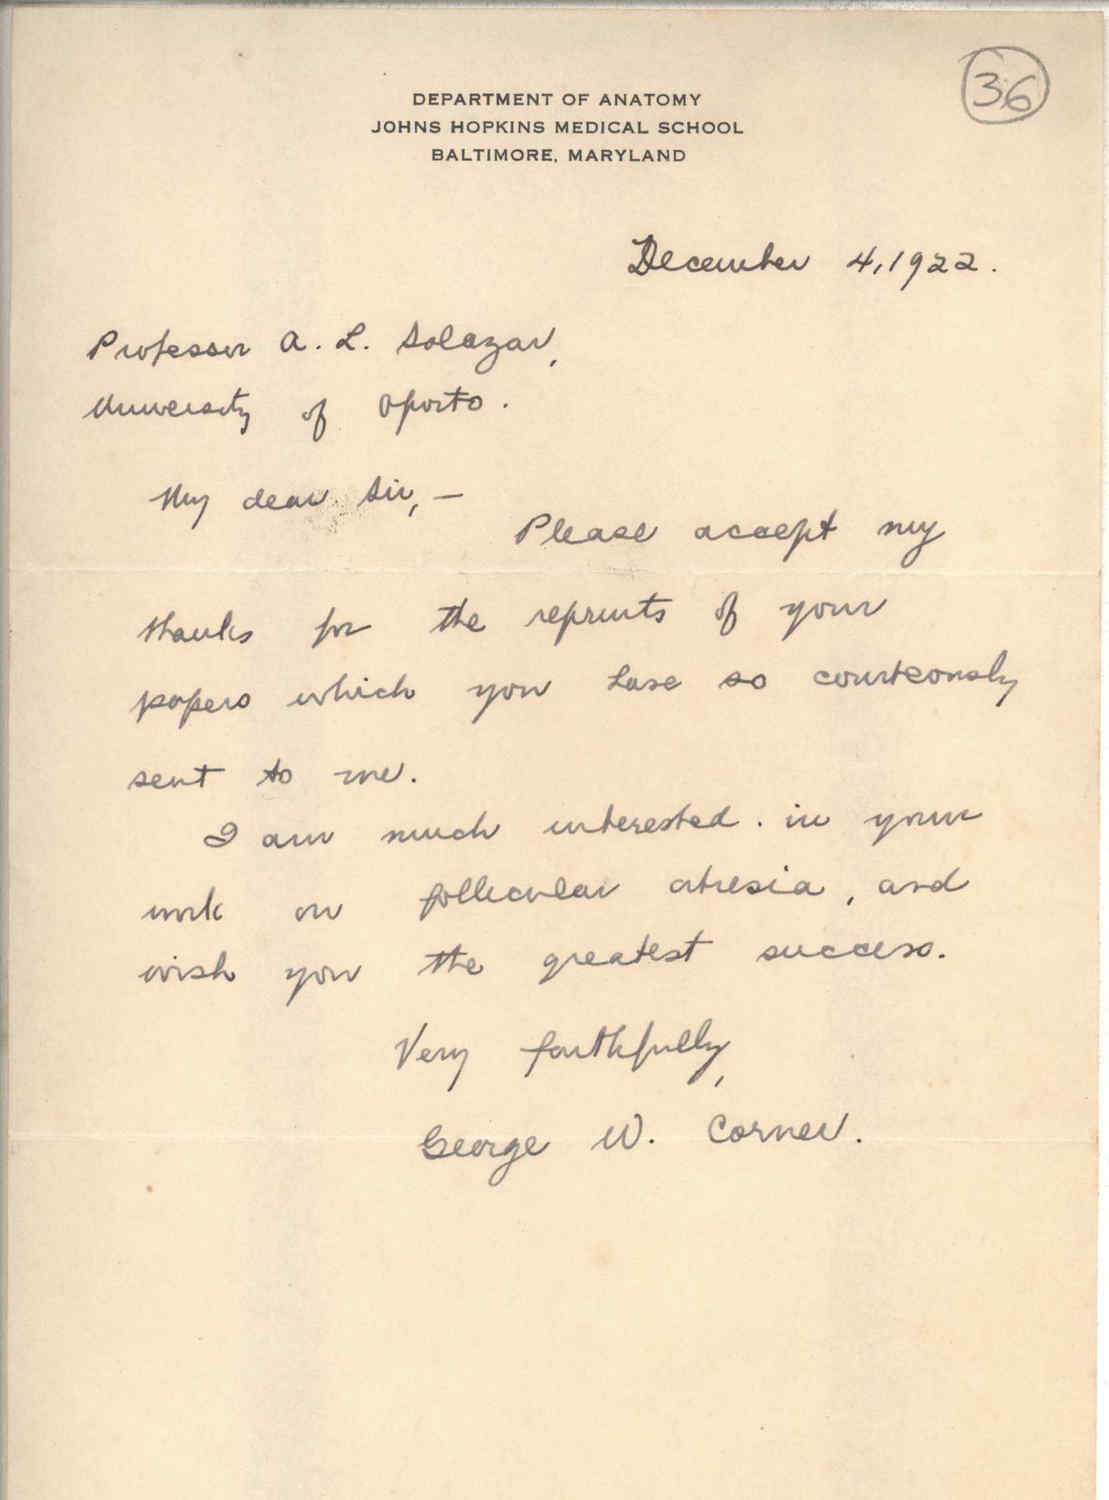 36
DEPARTMENT OF ANATOMY
JOHNS HOPKINS MEDICAL SCHOOL
BALTIMORE, MARYLAND
December 4, 1922.
Professor A. L. Salazar,
University of Oporto.
My dear Sir, —
Please accept my
thanks for the reprints of your
papers which you have so courteously
sent to me.
I am much interested in your
work on follicular atresia, and
wish you the greatest success.
Very faithfully,
George W. Corner.